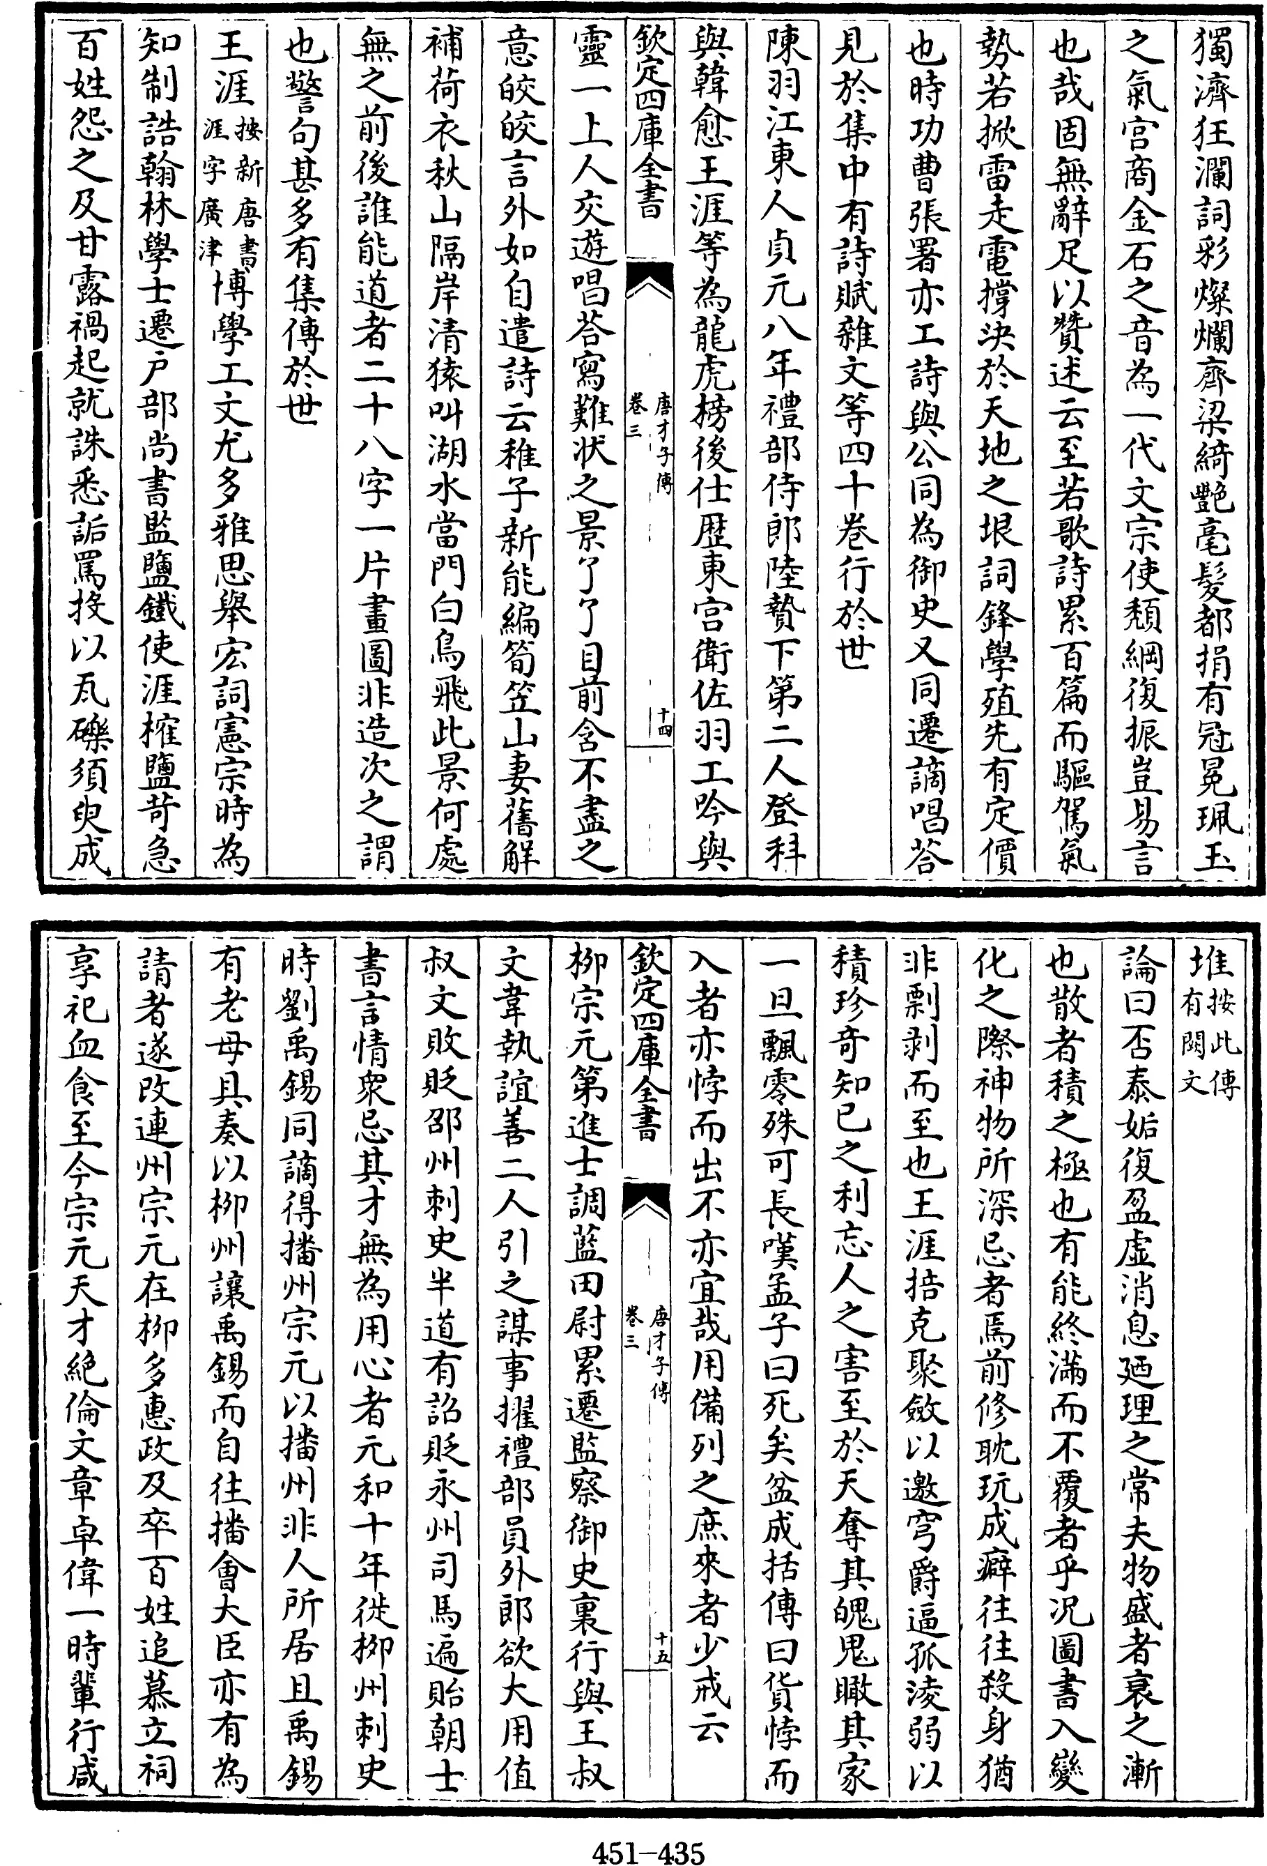 獨濟狂瀾詞彩燦爛齊梁綺艷毫髮都捐有冠冕珮玉
之氣宫商金石之音為一代文宗使頹綱復振豈易言
也哉固無辭足以贊述云至若歌詩累百篇而驅駕氣
勢若掀雷走電撐決於天地之垠詞鋒學殖先有定價
也時功曹張署亦工詩與公同為御史又同遷謫唱答
見於集中有詩賦雜文等四十卷行於世
陳羽江東人貞元八年禮部侍郎陸贄下第二人登科
與韓愈王涯等為龍虎榜後仕歴東宫衛佐羽工吟與
欽定四庫全書
唐才子傳
卷三
十四
靈一上人交遊唱答寫難状之景了了目前含不盡之
意皎皎言外如自遣詩云稚子新能編筍笠山妻舊解
補荷衣秋山隔岸清猿叫湖水當門白鳥飛此景何處
無之前後誰能道者二十八字一片畫圖非造次之謂
也警句甚多有集傳於世
王涯按新唐書涯字廣津博學工文尤多雅思舉宏詞憲宗時為
知制誥翰林學士遷户部尚書監鹽鐵使涯榷鹽苛急
百姓怨之及甘露禍起就誅悉詬罵投以瓦礫須臾成
堆按此傳有闕文
論曰否泰姤復盈虚消息廼理之常夫物盛者衰之漸
也散者積之極也有能終滿而不覆者乎况圖書入變
化之際神物所深忌者焉前修耽玩成癖往往殺身猶
非剽剥而至也王涯掊克聚斂以邀穹爵逼孤凌弱以
積珍奇知已之利忘人之害至於天奪其魄鬼瞰其家
一旦飄零殊可長嘆孟子曰死矣盆成括傳曰貨悖而
入者亦悖而出不亦宜哉用備列之庶來者少戒云
欽定四庫全書
唐才子傳
卷三
十五
柳宗元第進士調藍田尉累遷監察御史裏行與王叔
文韋執誼善二人引之謀事擢禮部員外郎欲大用值
叔文敗貶邵州刺史半道有詔貶永州司馬遍貽朝士
書言情衆忌其才無為用心者元和十年徙柳州刺史
時劉禹錫同謫得播州宗元以播州非人所居且禹錫
有老母具奏以柳州讓禹錫而自往播會大臣亦有為
請者遂改連州宗元在柳多惠政及卒百姓追慕立祠
享祀血食至今宗元天才絶倫文章卓偉一時輩行咸
451-435